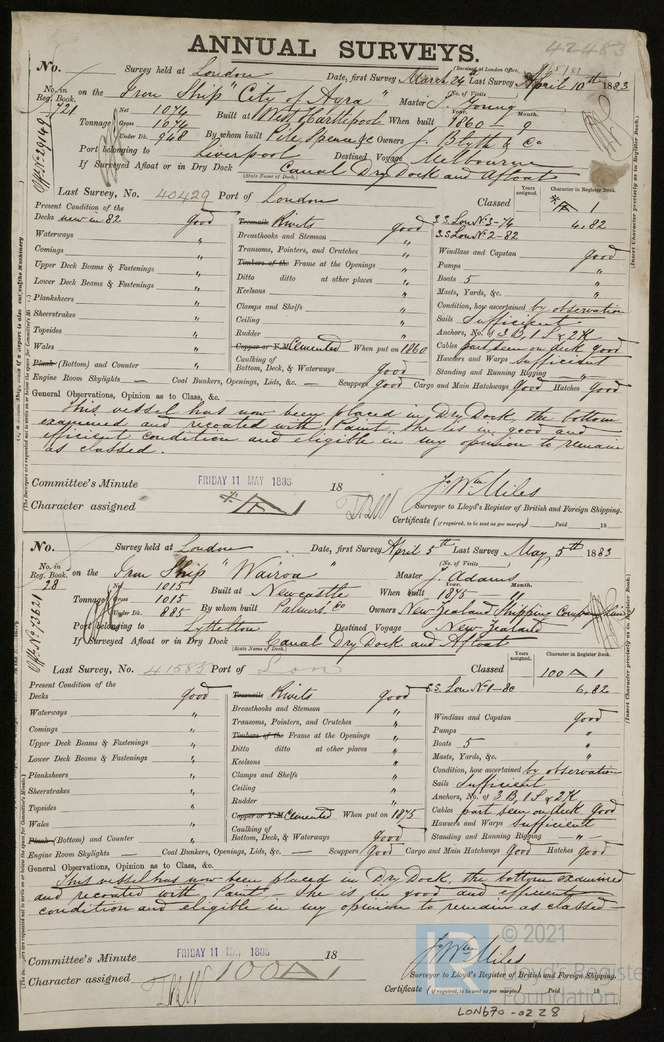 ANNUAL SURVEYS. 42483
No. Survey held at London Date, first Survey March 24 Last Survey April 10th 1883
(Received at London Office,
No. in Reg. Book. on the Iron Ship "City of Agra" Master J. Young
(No. of Visits )
721 Tonnage Net 1074 Built at West Hartlepool When built 1860 - 9
Year. Month.
Gross 1074
Under Dk. 948 By whom built Pile, Spence & Co Owners J. Blyth & Co
Port belonging to Liverpool Destined Voyage Melbourne
If Surveyed Afloat or in Dry Dock Canal Dry Dock and Afloat
(State Name of Dock.)
Last Survey, No. 40429 Port of London Classed
Years assigned. Character in Register Book.
A 1
Present Condition of the
Decks new in 82 Good Treenails Rivets good S.S. Lon No 3-74 6,82
S.S. Lon No 2-82
Waterways " Breasthooks and Stemson " Windlass and Capstan Good
Comings " Transoms, Pointers, and Crutches " Pumps "
Upper Deck Beams & Fastenings " Timbers of the Frame at the Openings " Boats 5 "
Lower Deck Beams & Fastenings " Ditto ditto at other places " Masts, Yards, &c. "
Planksheers " Keelsons " Condition, how ascertained by observation
Sheerstrakes " Clamps and Shelfs " Sails Sufficient
Topsides " Ceiling " Anchors, No. of 3 B, 1 S, & 2 K
Wales " Rudder " Cables part seen on deck good
Plank (Bottom) and Counter " Copper or Y.M. Cemented When put on 1860 Hawsers and Warps Sufficient
Caulking of Bottom, Deck, & Waterways Good Standing and Running Rigging "
Engine Room Skylights — Coal Bunkers, Openings, Lids, &c. — Scuppers Good Cargo and Main Hatchways Good Hatches Good
General Observations, Opinion as to Class, &c.
This vessel has now been placed in Dry Dock, the bottom
examined and recoated with Paint. She is in good and
efficient condition and eligible in my opinion to remain
as classed.
Committee's Minute FRIDAY 11 MAY 1883 18 J Wm Miles
Character assigned A 1 Surveyor to Lloyd's Register of British and Foreign Shipping.
Certificate (if required, to be sent as per margin) Paid 18
No. Survey held at London Date, first Survey April 5th Last Survey May 5th 1883
No. in Reg. Book. on the Iron Ship "Wairoa" Master J. Adams
(No. of Visits )
28 Tonnage Net 1015 Built at Newcastle When built 1875 - 11
Year. Month.
Gross 1015
Under Dk. 885 By whom built Palmers Co Owners New Zealand Shipping Company
Port belonging to Lyttelton Destined Voyage New Zealand
If Surveyed Afloat or in Dry Dock Canal Dry Dock and Afloat
(State Name of Dock.)
Last Survey, No. 41583 Port of Lon Classed
Years assigned. Character in Register Book.
100 A 1
Present Condition of the
Decks Good Treenails Rivets Good S.S. Lon No 1-80 6,82
Waterways " Breasthooks and Stemson " Windlass and Capstan Good
Comings " Transoms, Pointers, and Crutches " Pumps "
Upper Deck Beams & Fastenings " Timbers of the Frame at the Openings " Boats 5 "
Lower Deck Beams & Fastenings " Ditto ditto at other places " Masts, Yards, &c. "
Planksheers " Keelsons " Condition, how ascertained by observation
Sheerstrakes " Clamps and Shelfs " Sails Sufficient
Topsides " Ceiling " Anchors, No. of 3 B, 1 S & 2 K
Wales " Rudder " Cables part seen on deck Good
Plank (Bottom) and Counter " Copper or Y.M. Cemented When put on 1875 Hawsers and Warps Sufficient
Caulking of Bottom, Deck, & Waterways Good Standing and Running Rigging "
Engine Room Skylights — Coal Bunkers, Openings, Lids, &c. — Scuppers Good Cargo and Main Hatchways Good Hatches Good
General Observations, Opinion as to Class, &c.
This vessel has now been placed in Dry Dock, the bottom examined
and recoated with Paint. She is in good and efficient
condition and eligible in my opinion to remain as classed
Committee's Minute FRIDAY 11 MAY 1883 18 J Wm Miles
Character assigned 100 A 1 Surveyor to Lloyd's Register of British and Foreign Shipping.
Certificate (if required, to be sent as per margin) Paid 18
LR © 2021 Lloyd's Register Foundation
LON670-0228